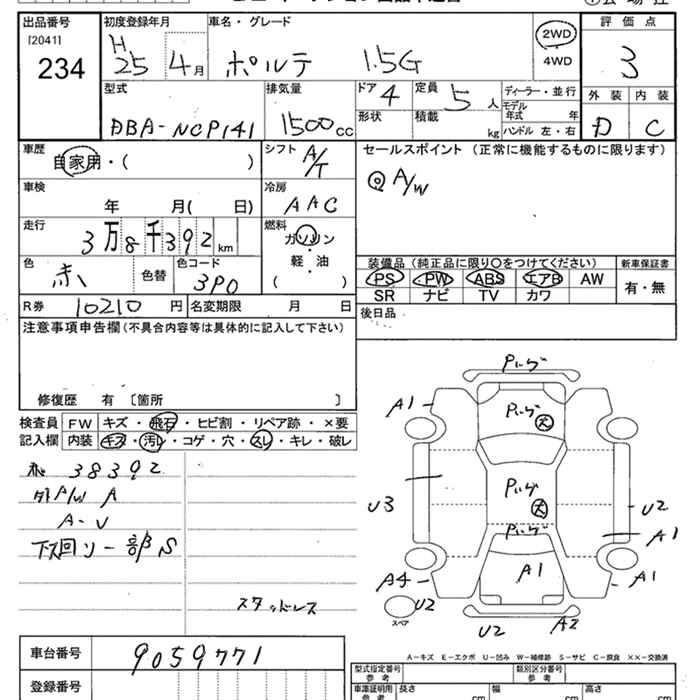 出品番号
[2041]
234
初度登録年月
H 25年 4月
車名・グレード
ポルテ 1.5G
2WD
4WD
評価点
3
外装 内装
D C
型式
DBA-NCP141
排気量
1500cc
ドア 4
形状
定員 5人
積載 kg
ディーラー・並行
モデル年式 年
ハンドル 左・右
車歴
自家用・( )
シフト A/T
セールスポイント (正常に機能するものに限ります)
◎ A/W
車検
年 月( 日)
冷房
AAC
走行
3万8千392km
燃料
ガソリン
軽・油
( )
色
赤
色替
色コード
3P0
装備品 (純正品に限り○をつけてください)
PS PW ABS エアB AW
SR ナビ TV カワ
新車保証書
有・無
R券 10210円
名変期限 月 日
後日品
注意事項申告欄 (不具合内容等は具体的に記入して下さい)
修復歴 有 〔箇所 〕
検査員記入欄
FW キズ・飛石・ヒビ割・リペア跡・×要
内装 キズ・汚レ・コゲ・穴・スレ・キレ・破レ
38392
外A/W A
A-U
下回リ一部S
スタッドレス
Pいげ
A1
Pいげ 大
Pいげ 大
U3
U2
Pいげ
A1
A1
A4
A1
U2
スペア
U2
A2
A-キズ E-エクボ U-凹み W-補修跡 S-サビ C-腐食 XX-交換済
車台番号
9059771
登録番号
型式指定番号
参考
類別区分番号
参考
車庫証明用
参考
長さ cm
幅 cm
高さ cm